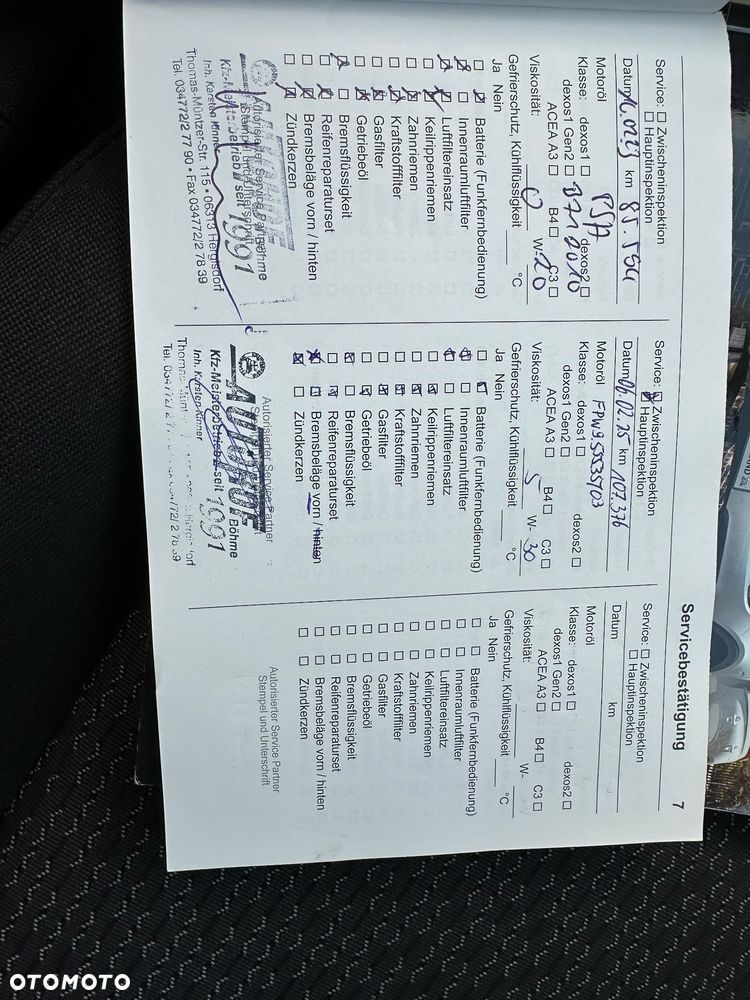 Servicebestätigung
7
Service: □ Zwischeninspektion
□ Hauptinspektion
Datum km 85.594
Motoröl PSA
Klasse: dexos1 □ dexos2 □
dexos1 Gen2 □ B71 0010
ACEA A3 □ B4 □ C3 □
Viskosität: 0 W- 20
Gefrierschutz, Kühlflüssigkeit °C
Ja Nein
□ ☒ Batterie (Funkfernbedienung)
☒ □ Innenraumluftfilter
☒ □ Luftfiltereinsatz
□ ☒ Keilrippenriemen
□ ☒ Zahnriemen
□ ☒ Kraftstofffilter
□ ☒ Gasfilter
□ ☒ Getriebeöl
☒ □ Bremsflüssigkeit
□ ☒ Reifenreparaturset
□ ☒ Bremsbeläge vorn / hinten
□ ☒ Zündkerzen
Autorisierter Service Partner
Stempel und Unterschrift
AUTOHOF
Böhme
Kfz-Meisterbetrieb seit 1991
Inh. Karsten Kinner
Thomas-Müntzer-Str. 115 • 06313 Hergisdorf
Tel. 034772/2 77 90 • Fax 034772/2 78 39
Service: □ Zwischeninspektion
☒ Hauptinspektion
Datum 02.25 km 107.376
Motoröl FPW9.55535/03
Klasse: dexos1 □ dexos2 □
dexos1 Gen2 □
ACEA A3 □ B4 □ C3 □
Viskosität: 5 W- 30
Gefrierschutz, Kühlflüssigkeit °C
Ja Nein
□ ☒ Batterie (Funkfernbedienung)
☒ □ Innenraumluftfilter
☒ □ Luftfiltereinsatz
□ ☒ Keilrippenriemen
□ ☒ Zahnriemen
□ ☒ Kraftstofffilter
□ ☒ Gasfilter
□ ☒ Getriebeöl
☒ □ Bremsflüssigkeit
□ ☒ Reifenreparaturset
☒ □ Bremsbeläge vorn / hinten
☒ □ Zündkerzen
Autorisierter Service Partner
AUTOHOF
Böhme
Kfz-Meisterbetrieb seit 1991
Inh. Karsten Kinner
Tel. 034772/2 77
Service: □ Zwischeninspektion
□ Hauptinspektion
Datum km
Motoröl
Klasse: dexos1 □ dexos2 □
dexos1 Gen2 □
ACEA A3 □ B4 □ C3 □
Viskosität: W-
Gefrierschutz, Kühlflüssigkeit °C
Ja Nein
□ □ Batterie (Funkfernbedienung)
□ □ Innenraumluftfilter
□ □ Luftfiltereinsatz
□ □ Keilrippenriemen
□ □ Zahnriemen
□ □ Kraftstofffilter
□ □ Gasfilter
□ □ Getriebeöl
□ □ Bremsflüssigkeit
□ □ Reifenreparaturset
□ □ Bremsbeläge vorn / hinten
□ □ Zündkerzen
Autorisierter Service Partner
Stempel und Unterschrift
OTOMOTO